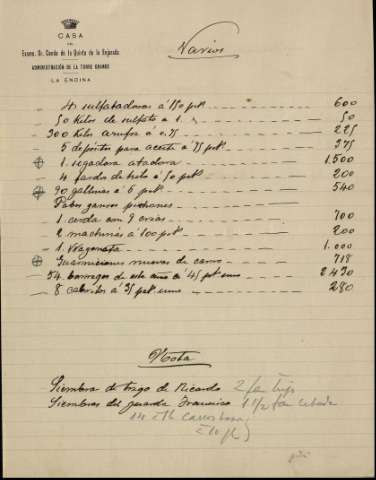 CASA
DEL
Excmo. Sr. Conde de la Quinta de la Enjarada
ADMINISTRACIÓN DE LA TORRE GRANDE
LA ENCINA
Varios
4 sulfatadoras á 150 pts 600
50 kilos de sulfato á 1. 50
300 kilos azufre á 0.75 225
5 depositos para aceite á 75 pts 375
1 segadora atadora 1.500
4 fardos de hilo á 50 pts 200
90 gallinas á 6 pts 540
Pabos gansos pichones
1 cerda con 9 crias 700
2 machinas á 100 pts 200
1 Vagoneta 1.000
Guarniciones nuevas de carro 718
54 borregos de este año á 45 pts uno 2430
8 cabritos á 35 pts uno 280
Nota
Siembra de trigo de Ricardo 2 fa trigo
Siembras del guarda Francisco 1 1/2 fa cebada
14